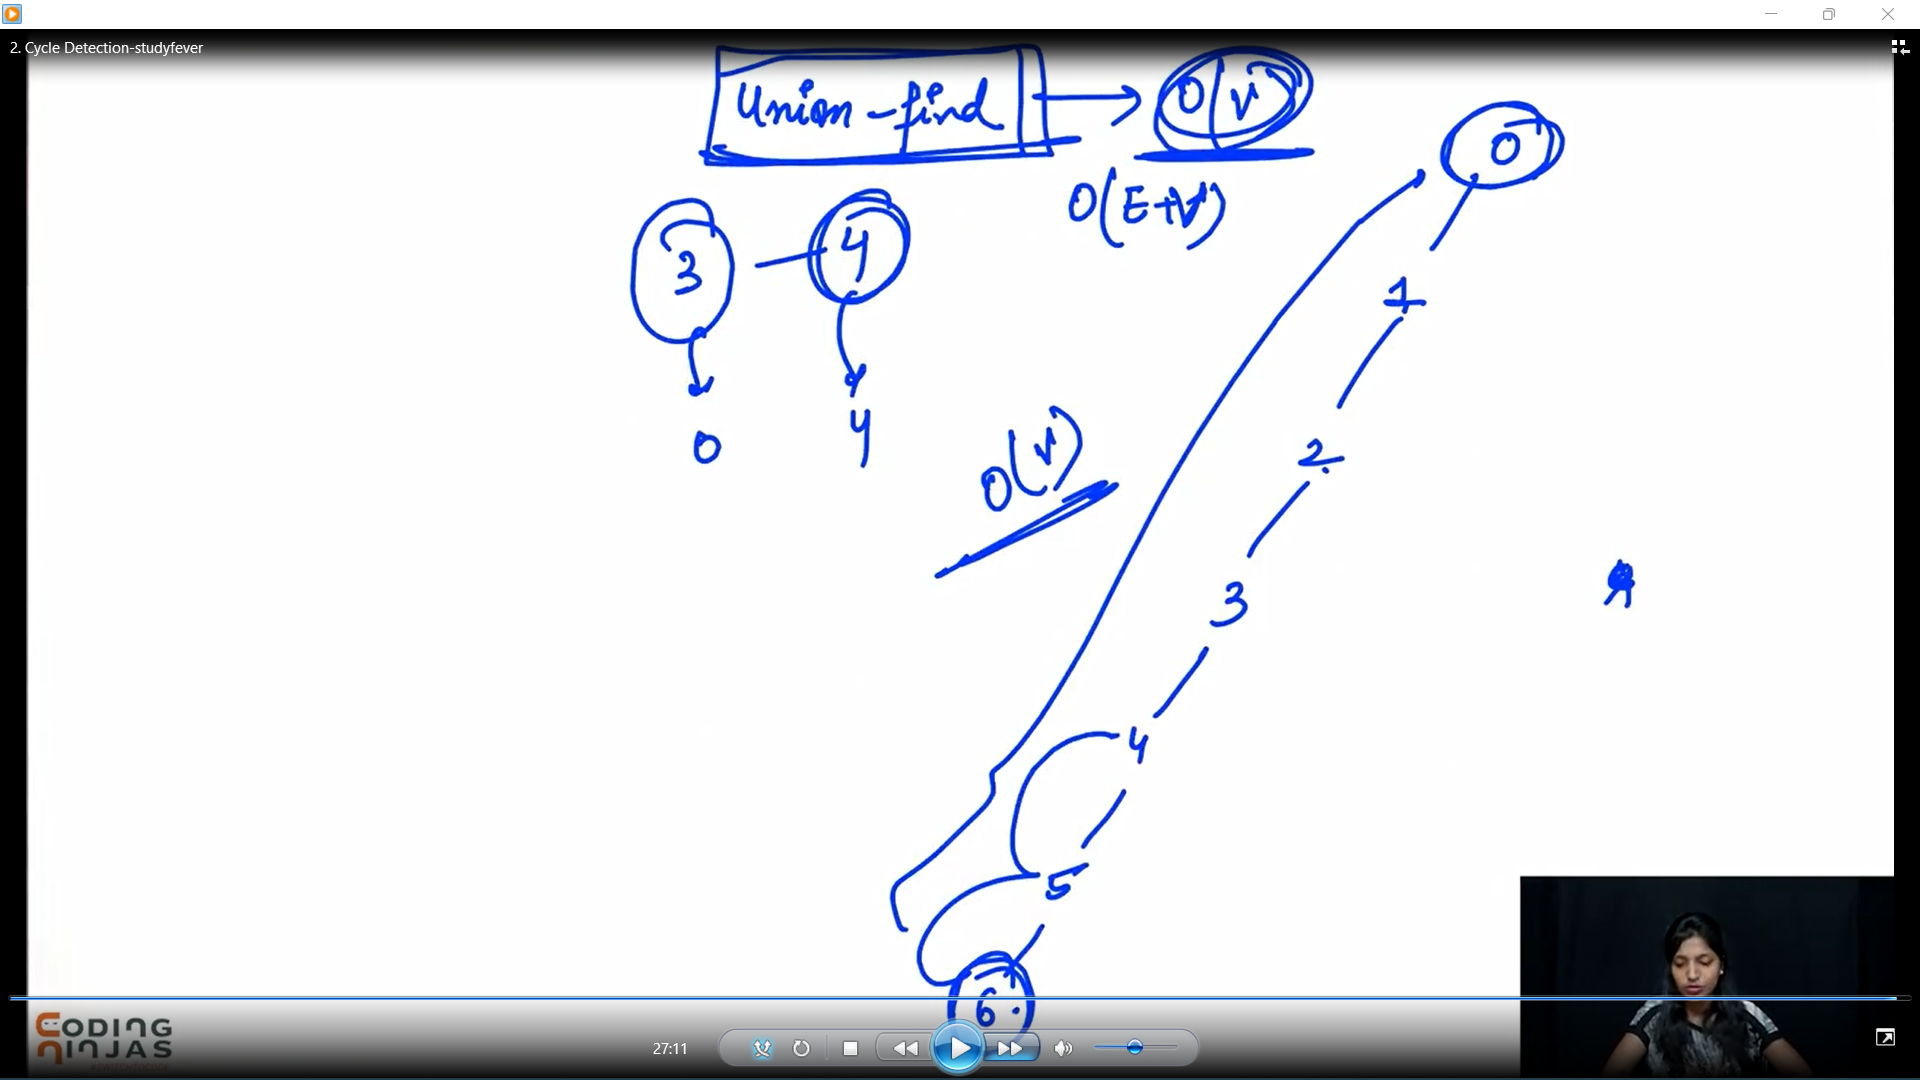 2. Cycle Detection-studyfever
Union-find → O(V)
O(E+V)
0
3 — 4
0 4
O(V)
1
2
3
4
5
6
CODING
NINJAS
27:11